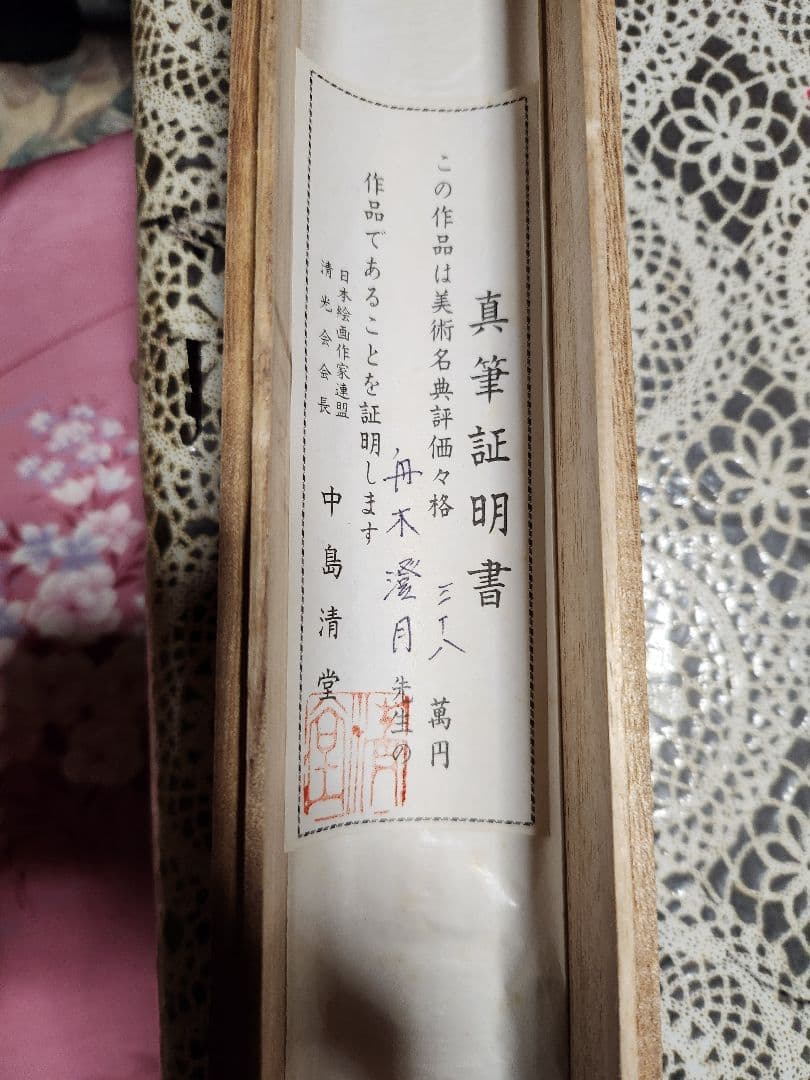 真筆証明書
この作品は美術名典評価々格 三十八 萬円
丹木澄月 先生の
作品であることを証明します
日本絵画作家連盟
清光会会長
中島清堂
清堂